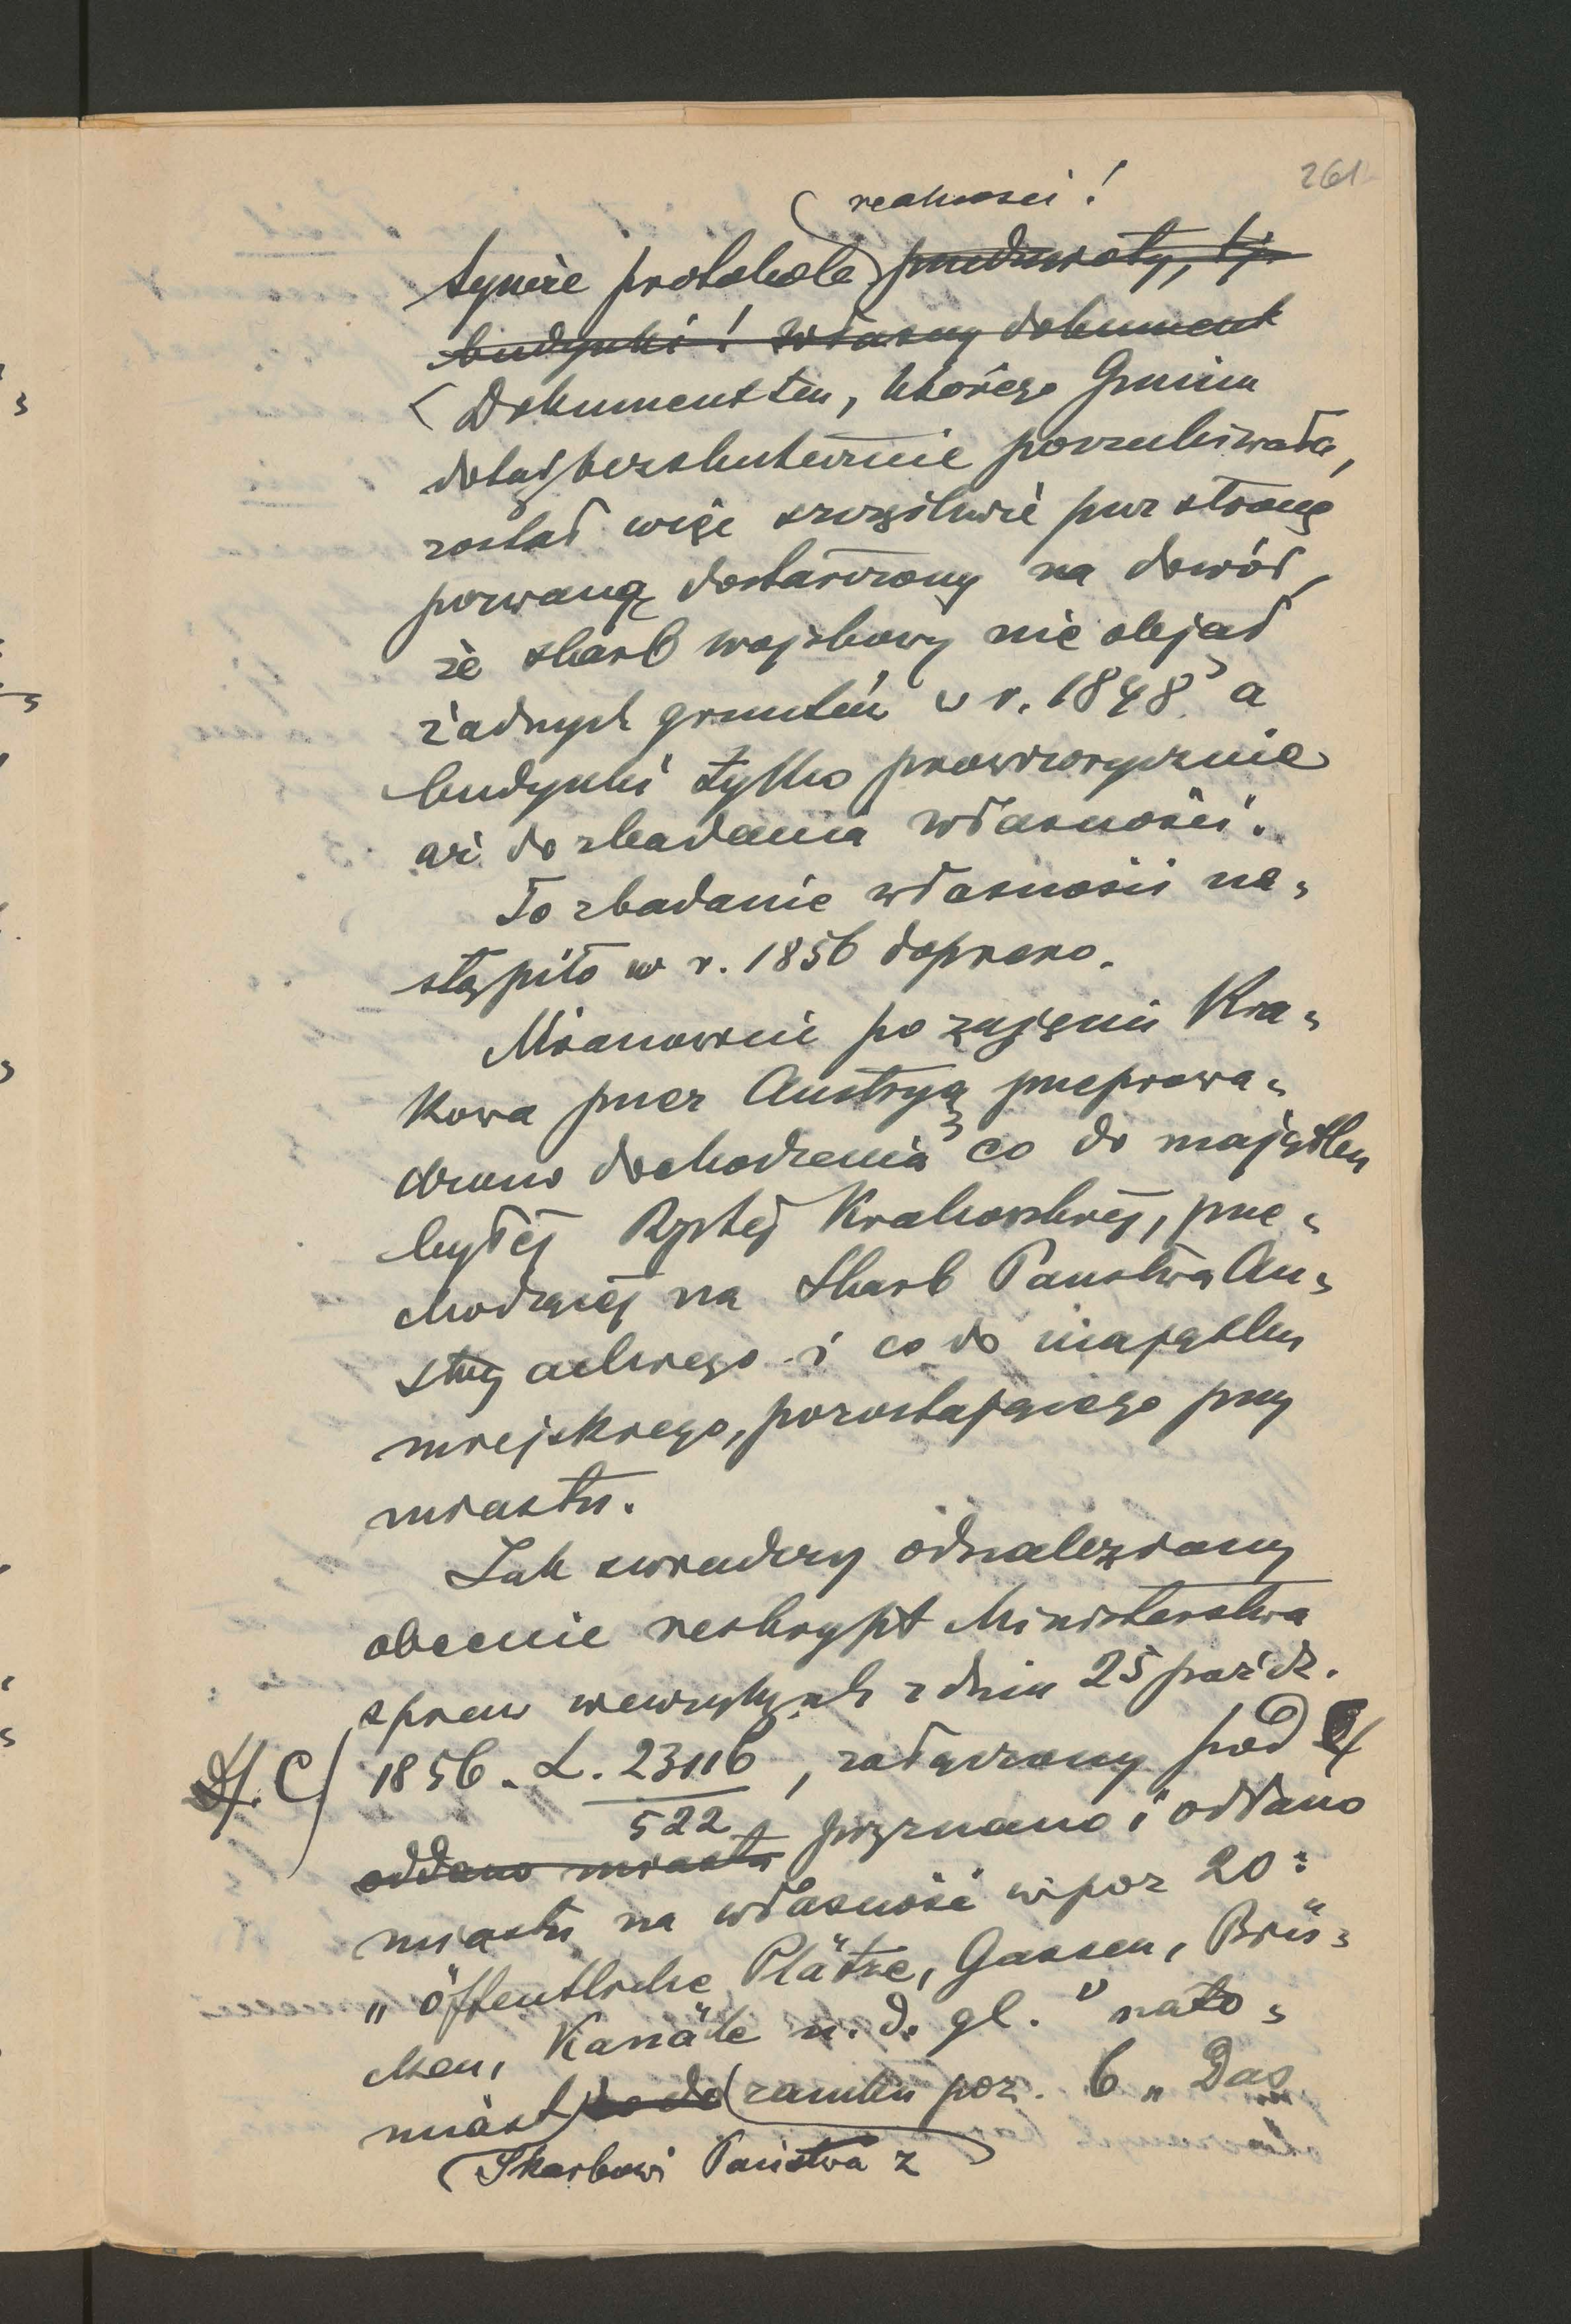 261
realności!
tymże protokole przedmioty, tj.
budynki! własny dokument
Dokument ten, którego Gmina
dotąd bezskutecznie poszukiwała,
został więc szczęśliwie przez stronę
pozwaną dostarczony na dowód,
że skarb wojskowy nie objął
żadnych gruntów w r. 1848, a
budynki tylko prowizorycznie
aż do zbadania własności.
To zbadanie własności na-
stąpiło w r. 1856 dopiero.
Mianowicie po zajęciu Kra-
kowa przez Austryą, przeprowa-
dzono dochodzenia, co do majątku
byłej Rzptej Krakowskiej, prze-
chodzącej na Skarb Państwa Au-
stryackiego i co do majątku
miejskiego, pozostającego przy
miastu.
Jak świadczy odnaleziony
obecnie reskrypt Ministerstwa
spraw wewnętrznych z dnia 25 paźdz.
C/ 1856. L. 23116/522, załączony pod
oddano miastu przyznano i oddano
miastu na własność w poz 20:
„öffentliche Plätze, Gassen, Brü-
cken, Kanäle u. d. gl." nato-
miast zamku poz. 6 „Das
Skarbowi Państwa z